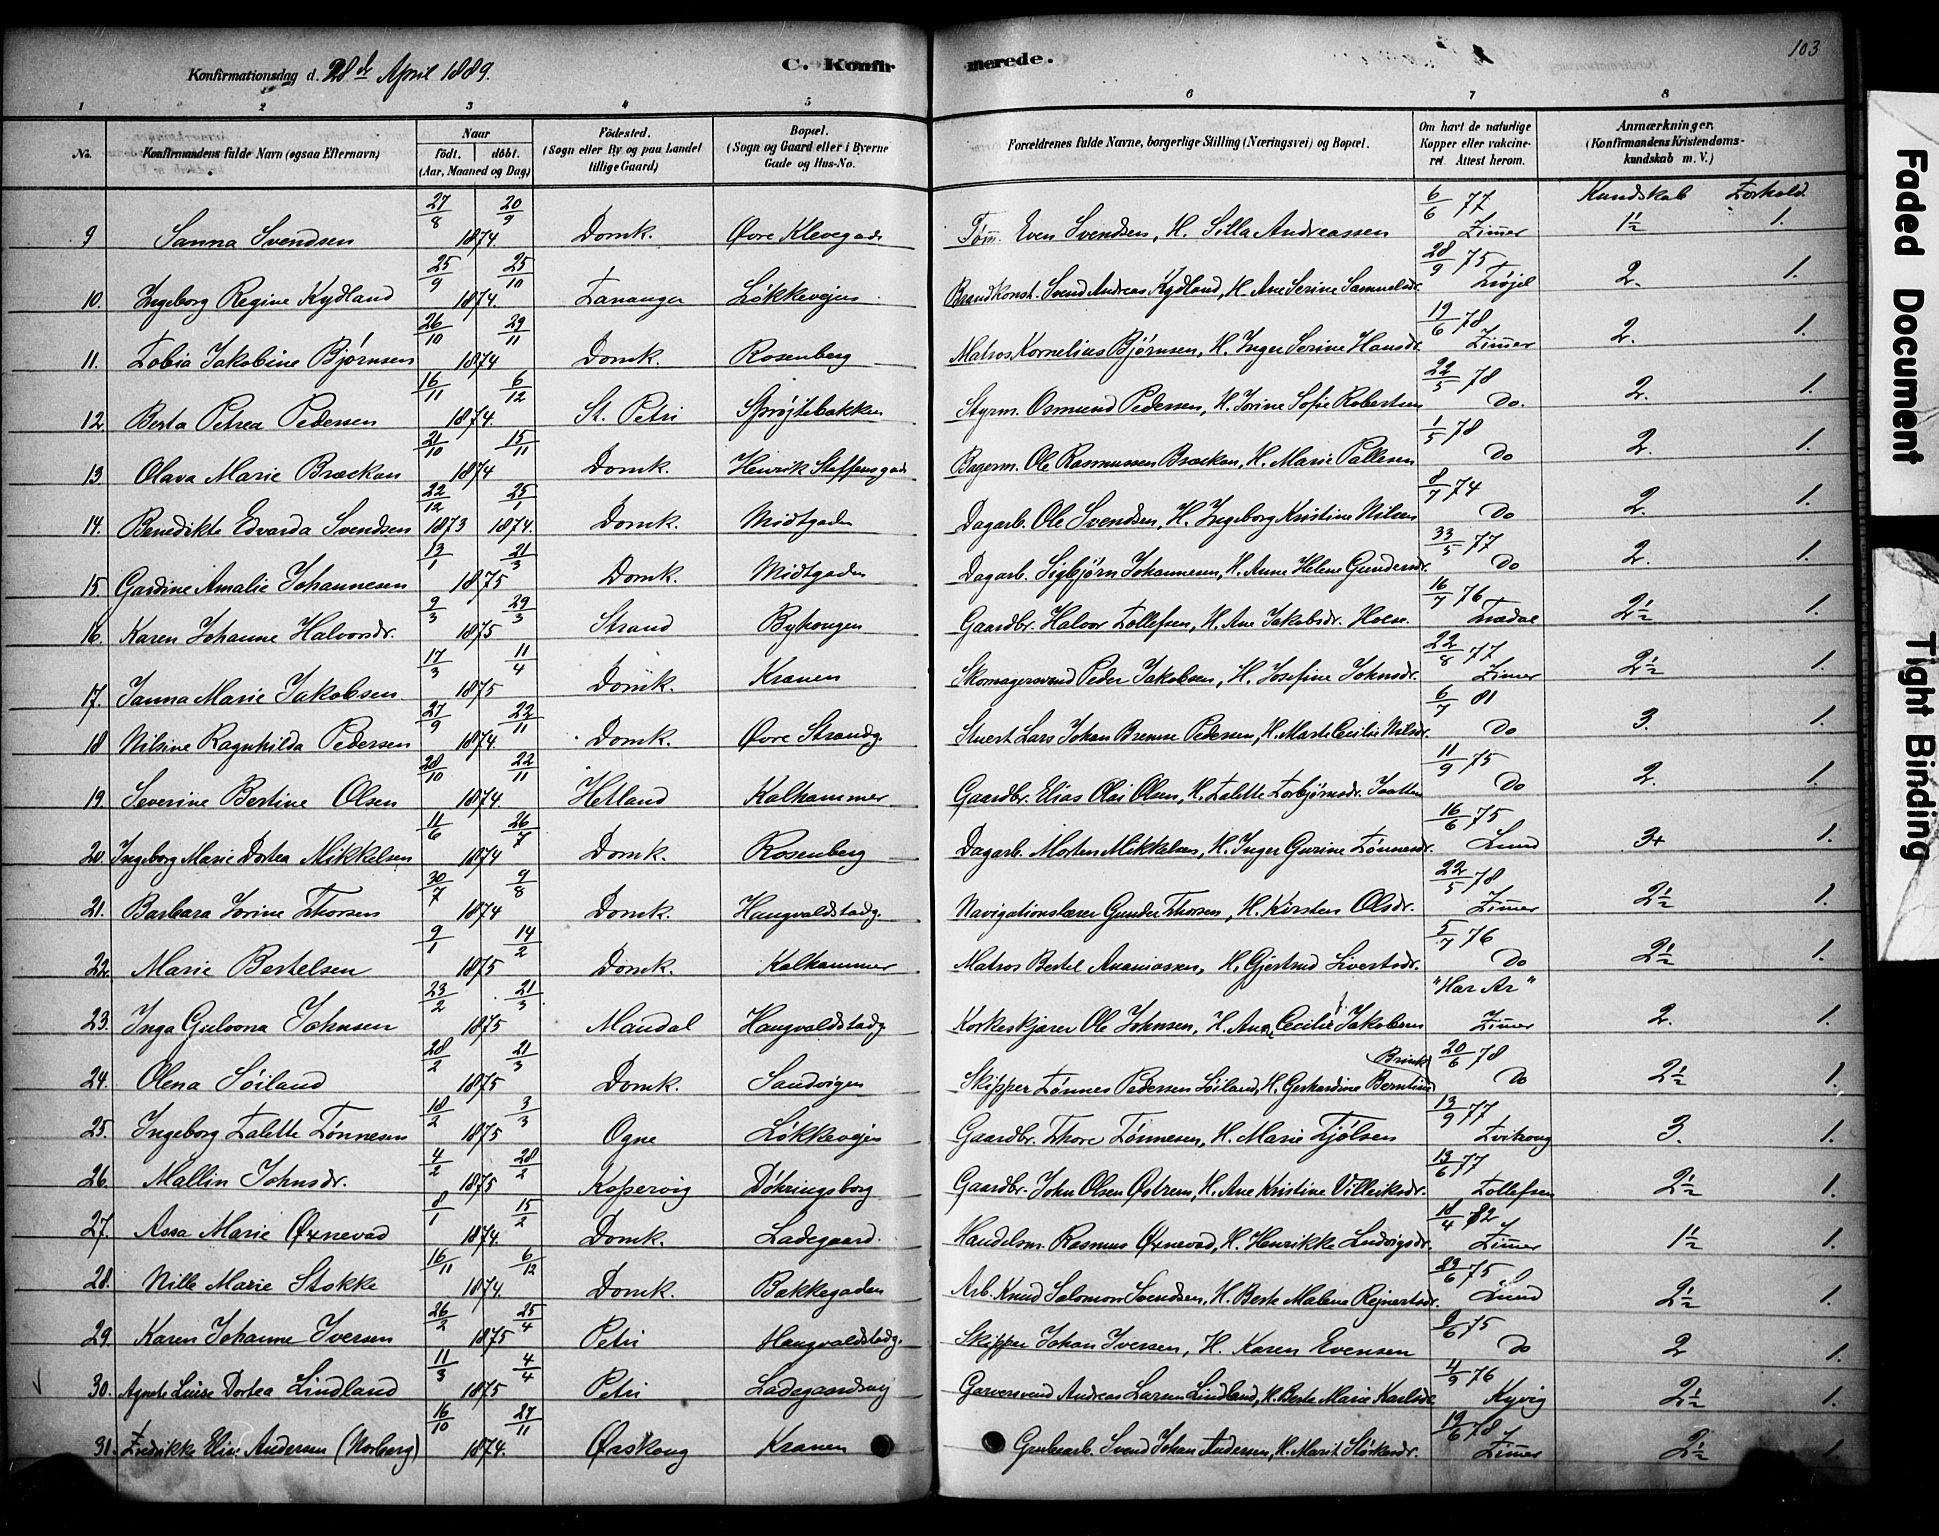 Konfirmationsdag d. 28de April 1889.
C. Konfirmerede.
103
1 2 3 4 5 6 7 8
No. Konfirmandens fulde Navn (ogsaa Efternavn) Naar født. døbt. (Aar, Maaned og Dag) Fødested. (Sogn eller By og paa Landet tillige Gaard) Bopæl. (Sogn og Gaard eller i Byerne Gade og Hus-No. Forældrenes fulde Navne, borgerlige Stilling (Næringsvei) og Bopæl. Om havt de naturlige Kopper eller vakcineret Attest herom. Anmærkninger. (Konfirmandens Kristendomskundskab m. V.)
Kundskab Forhold
9 Sanna Svendsen 27/8 20/9 1874 Domk. Øvre Klevegade Tøm. Even Svendsen, H. Silla Andreassen 6/6 77 Zimer 1½ 1.
10. Ingeborg Regine Kydland 25/9 25/10 1874. Tananger Løkkevejen Brandkonst. Svend Andreas Kydland, H. Ane Serine Samuelsdr. 28/9 75 2. 1.
11. Tobia Jakobine Bjørnsen 26/10 29/11 1874 Domk. Rosenberg Matros Kornelius Bjørnsen, H. Inger Serine Hansdr. 19/6 78 Zimer 2. 1.
12. Berta Petrea Pedersen 16/11 6/12 1874. St. Petri Sprøjtebakken Styrm. Osmund Pedersen, H. Jorine Sofie Robertsen 22/5 78 Do. 2. 1.
13. Olava Marie Brækan 21/10 15/11 1874 Domk. Henrik Steffensgade Bagerm. Ole Rasmussen Brækan, H. Marie Pallesen 1/5 78 Do 2. 1.
14. Benedikte Edvarda Svendsen 22/12 1873 25/1 1874. Domk. Midtgaden Dagarb. Ole Svendsen, H. Ingeborg Kristine Nilsen 8/7 74 Do 2. 1.
15. Gardine Amalie Johannesen 13/1 21/3 1875 Domk. Midtgaden Dagarb. Sigbjørn Johannesen, H. Anne Helene Gundersdr. 33/5 77 Do 2. 1.
16. Karen Johanne Halvorsdr. 9/3 29/3 1875 Strand Byhougen Gaardbr. Halvor Tollefsen, H. Ane Jakobsdr. 16/7 76 2½ 1.
17. Janna Marie Jakobsen 17/3 11/4 1875 Domk. Kranen Skomagersvend Peder Jakobsen, H. Josefine Johnsdr. 22/8 77 Zimer 2½ 1.
18 Nilsine Ragnhilda Pedersen 27/9 22/11 1874. Domk. Øvre Strandg. Stuert Lars Johan Bremse Pedersen, H. Marte Cecilie Nilsdr. 6/7 81 Do 3. 1.
19. Severine Bertine Olsen 28/10 22/11 1874. Hetland Kalhammer Gaardbr. Elias Olai Olsen, H. Talette Torbjørnsdr. Jaatten 11/9 75 Do 2. 1.
20. Ingeborg Marie Dortea Mikkelsen 11/6 26/7 1874 Domk. Rosenberg Dagarb. Morten Mikkelsen, H. Inger Gurine Tønnesdr. 16/6 75 Lund 3+ 1.
21. Barbara Jorine Thorsen 30/7 9/8 1874 Domk. Haugvaldstadg. Navigationslærer Gunder Thorsen, H. Kirsten Olsdr. 22/5 78 Zimer 2½ 1.
22. Marie Bertelsen 9/1 14/2 1875 Domk. Kalhammer Matros Bertel Ananiassen, H. Gjertrud Sivertsdr. 5/7 76 Do 2½ 1.
23. Inga Gulvona Johnsen 23/2 21/3 1875 Mandal Haugvaldstadg Korkeskjærer Ole Johnsen, H. Ana Cecilie Jakobsen "Har Ar" Zimer 2. 1.
24. Olena Søiland 28/2 21/3 1875 Domk. Sandvigen Skipper Tønnes Pedersen Søiland, H. Gerhardine Berntine Brink 20/6 78 Do 2½ 1.
25. Ingeborg Talette Tønnesen 18/2 3/3 1875 Ogne Løkkevejen Gaardbr. Thore Tønnesen, H. Marie Fjølsen 13/9 77 3. 1.
26. Mallin Johnsdr. 4/2 28/2 1875 Kopervig Døhringsborg Gaardbr. John Olsen Østrem, H. Ane Kristine Villeiksdr. 13/6 77 Tollefsen 2½ 1.
27. Assa Marie Øxnevad 8/1 15/2 1874. Domk. Ladegaard. Handelsm. Rasmus Øxnevad, H. Henrikke Ludvigsdr. 18/4 82 Zimer 1½ 1.
28. Nille Marie Stokke 16/11 6/12 1874. Domk. Bakkegaden Arb. Knud Salomon Svendsen, H. Berte Malene Rejnertsdr. 29/6 75 Lund 2½ 1.
29. Karen Johanne Iversen 26/2 25/4 1875 Petri Haugvaldstadg. Skipper Johan Iversen, H. Karen Evensen 9/6 75 Do 2 1.
30. Agnete Luise Dortea Lindland 11/3 4/4 1875 Petri Ladegaardsvej Garversvend Andreas Larsen Lindland, H. Berte Marie Karlsdr. 4/9 76 Kyvig 2½ 1.
31. Fredrikke Elise Andersen (Norberg) 16/10 27/11 1874. Ørskoug Kranen Grubearb. Svend Johan Andersen, H. Marit Størkersdr. 19/6 78 Zimer 2½ 1.
Faded Document
Tight Binding